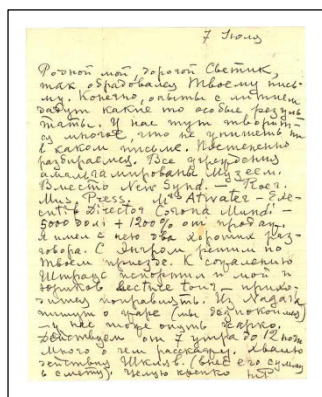 7 Июля
Родной мой, дорогой Светик,
так обрадовался Твоему пись-
му. Конечно, опыты с литием
дадут какие то особые резуль
таты. У нас тут творит-
ся многое, что не упишешь ни
в каком письме. Постепенно
разбираемся. Все учреждения
амальгамированы Музеем.
Вместо New Synd. — Roer.
Mus. Press. Mrs Atwater — Exe-
cutive Director Corona Mundi —
5000 дол. + 1200% от продаж
я имел с нею два хороших раз-
говора. С
Твоем приезде. К сожалению
Штраус испортил и мой и
Юриков lecture tour — прихо-
дится поправлять. Из Nagar'а
пишут о жаре (мы беспокоимся)
— у нас тоже опять жарко.
Действуем от 7 утра до 12 ночи
Много о чем расскажу. Хвалю
действия Шкляв. (внес его сумму
в смету). Целую крепко